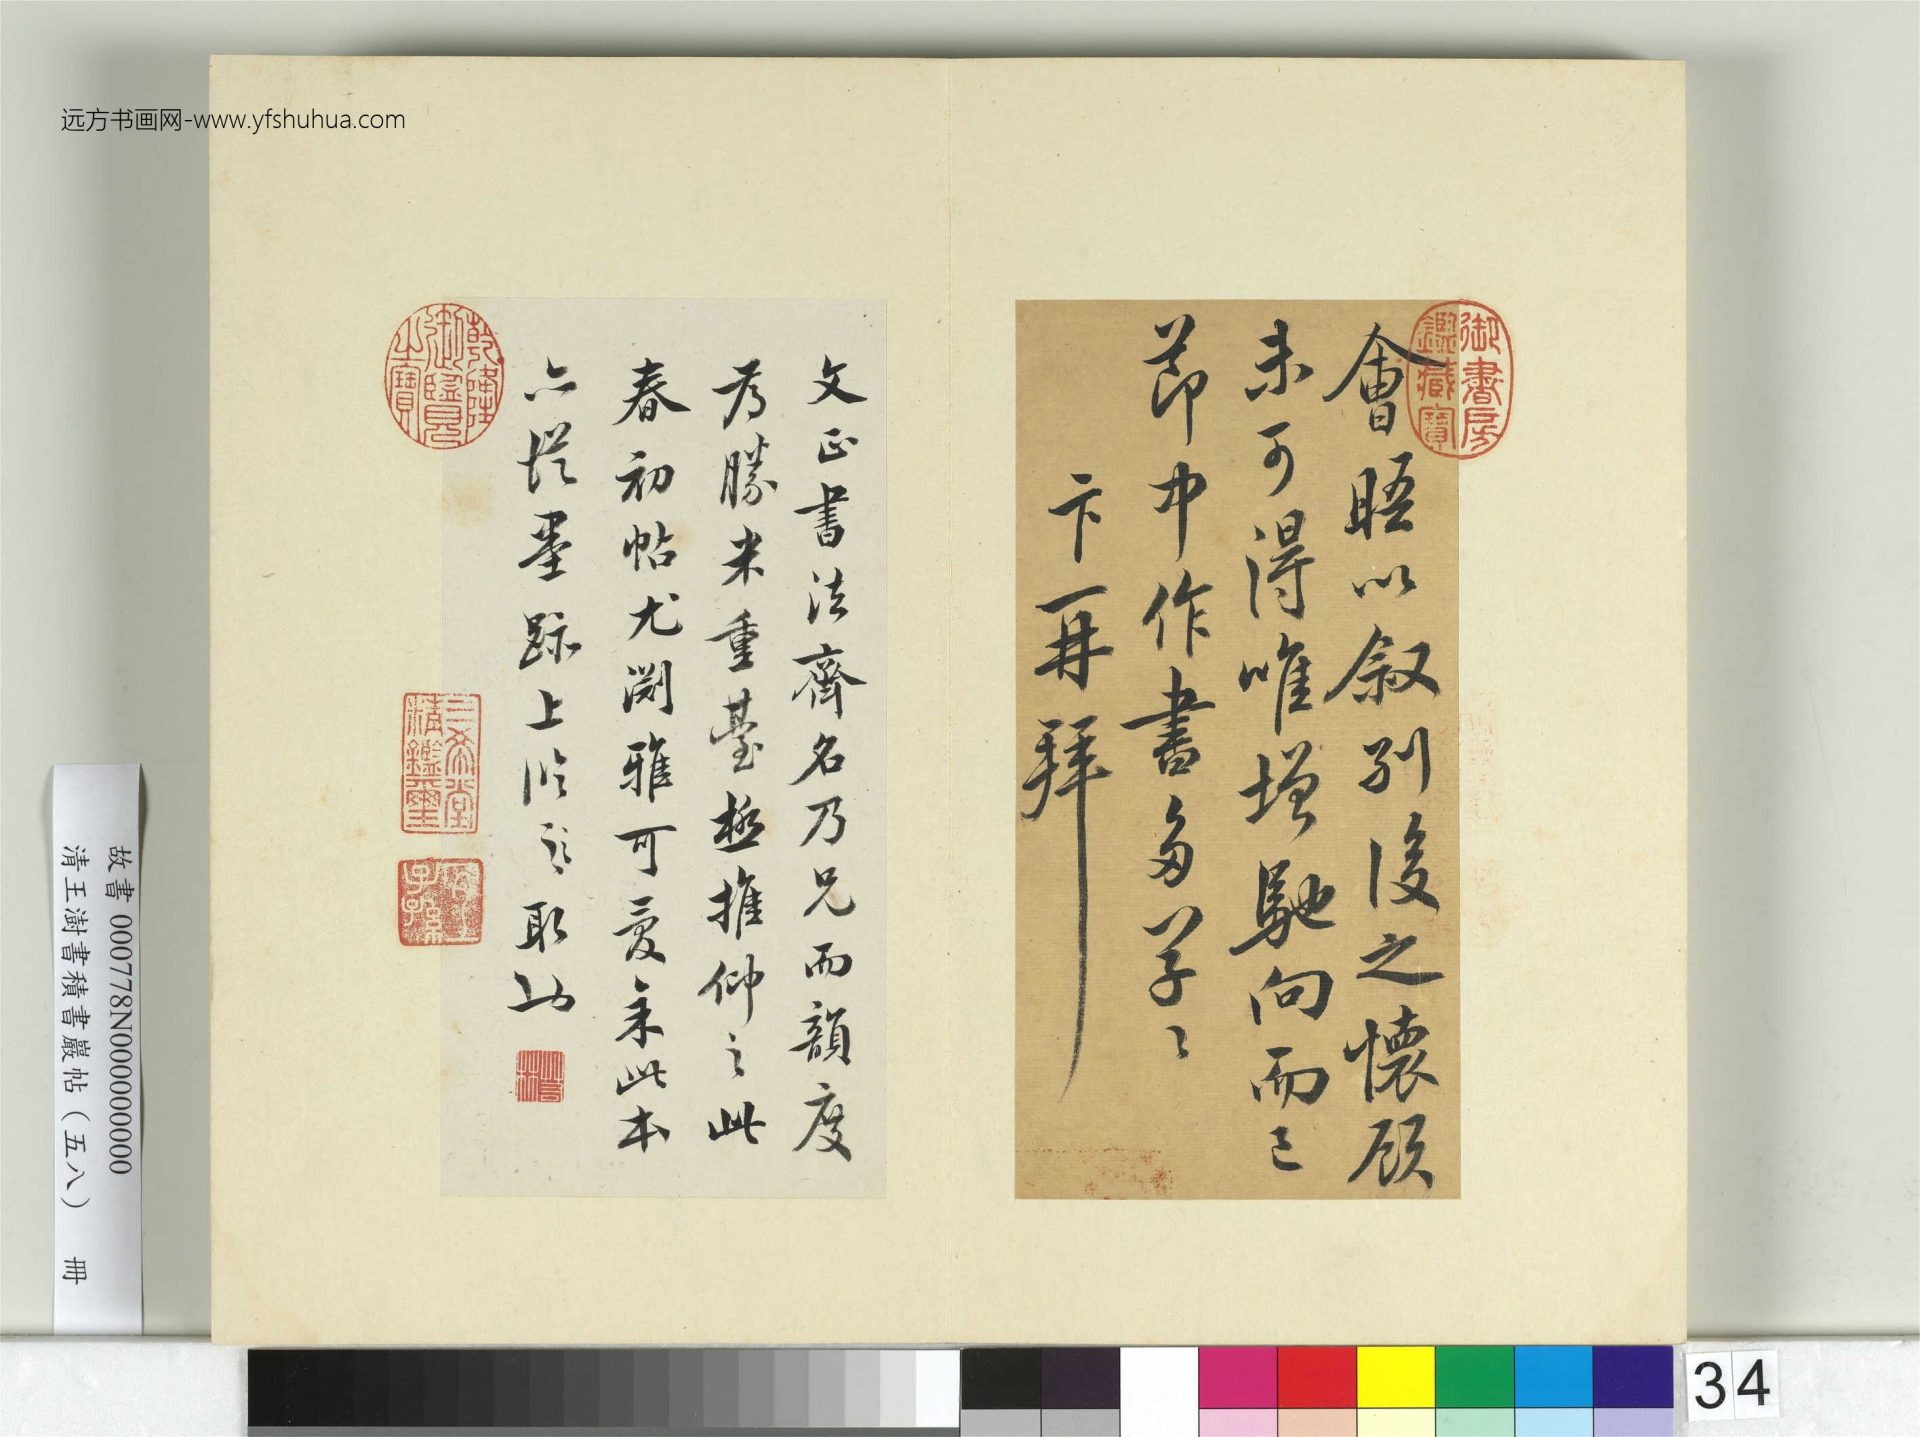 远方书画网-www.yfshuhua.com
御書房鑑藏寶
會晤以叙別後之懷顧
未可得唯增馳向而已
節中作書多草〻
卞再拜
文正書法齊名乃兄而韻度
為勝米重臺極推仰之此
春初帖尤淵雅可愛余此本
亦從墨跡上臨之取
乾隆御覽之寶
三希堂精鑑璽
宜子孫
故書 000778N000000000
清王澍書積書巖帖(五八) 冊
34